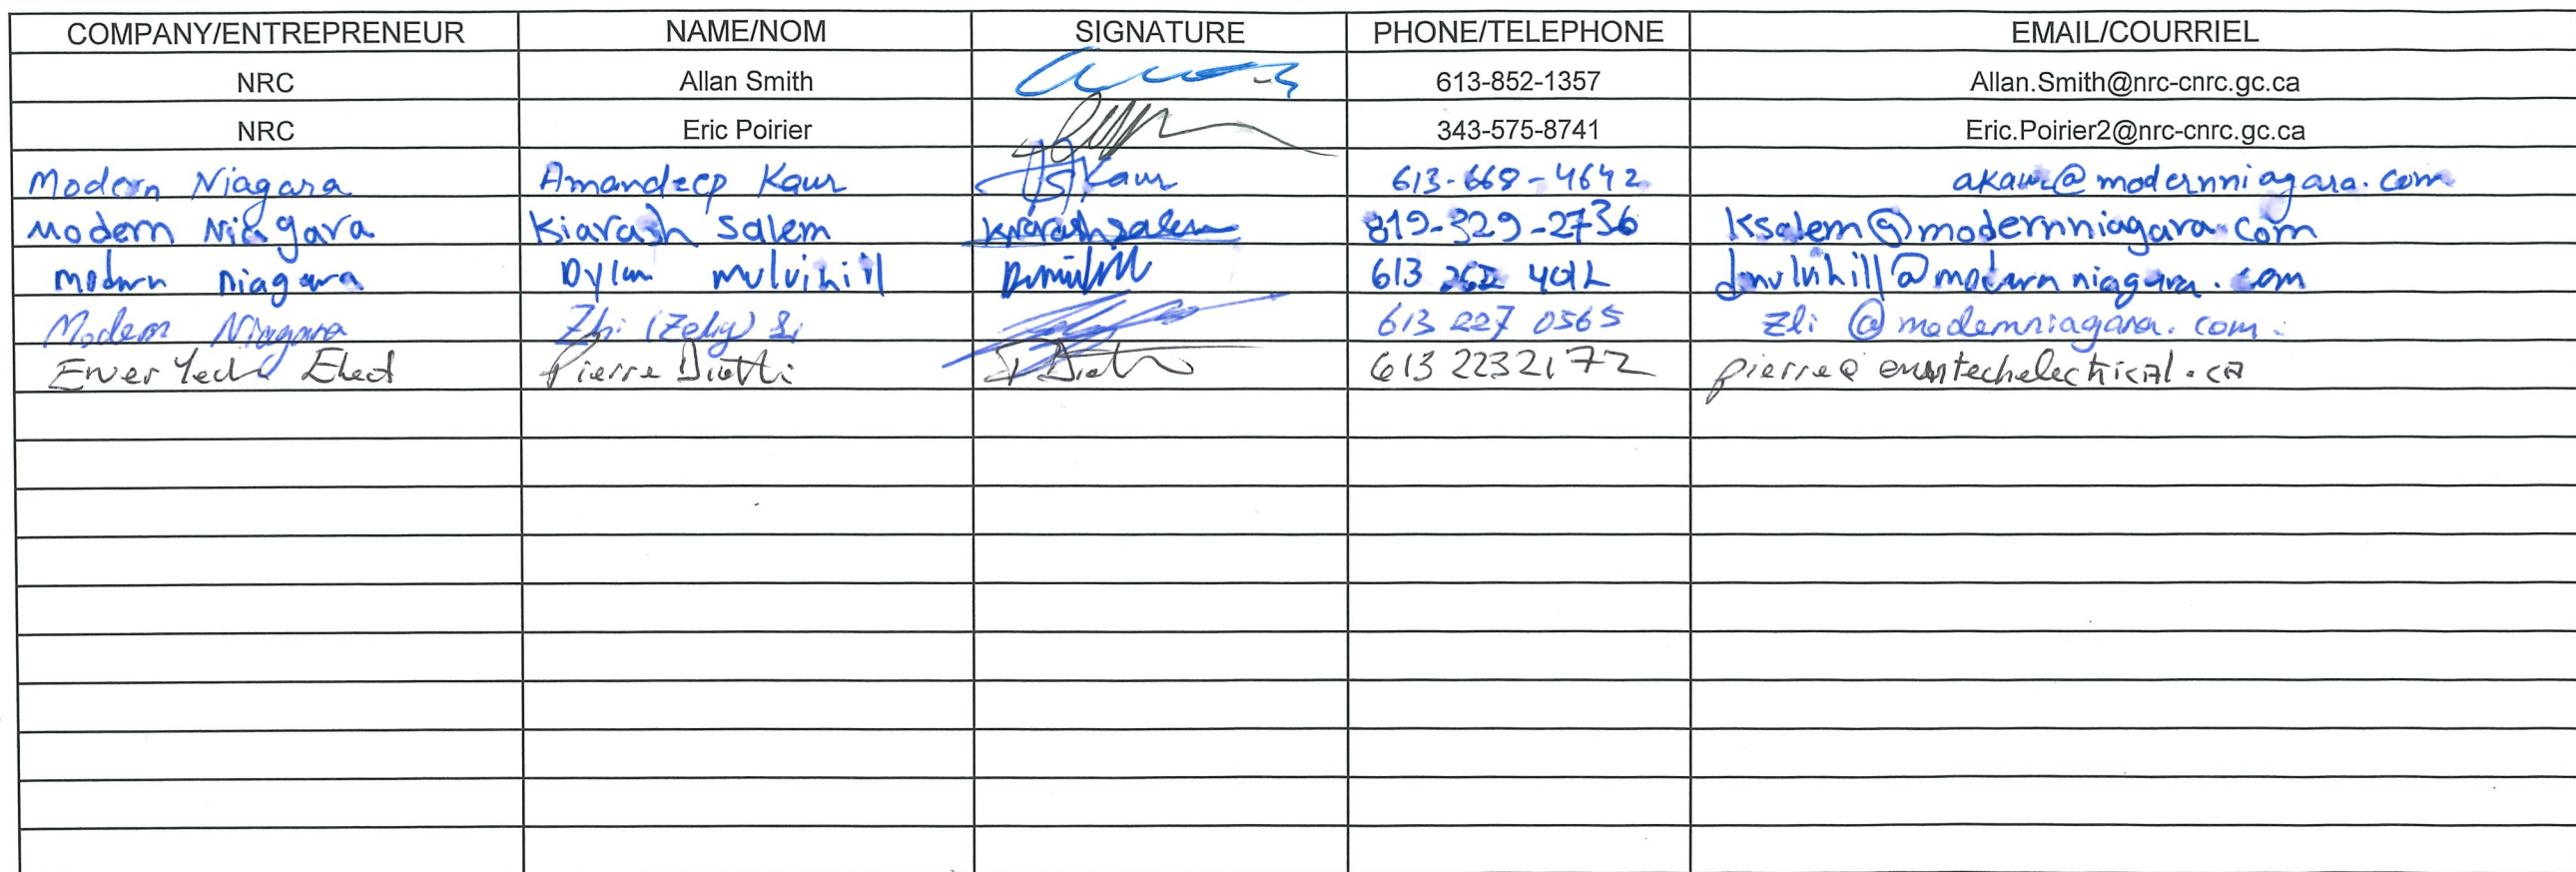 COMPANY/ENTREPRENEUR NAME/NOM SIGNATURE PHONE/TELEPHONE EMAIL/COURRIEL
NRC Allan Smith 613-852-1357 Allan.Smith@nrc-cnrc.gc.ca
NRC Eric Poirier 343-575-8741 Eric.Poirier2@nrc-cnrc.gc.ca
Modern Niagara Amandeep Kaur Kaur 613-668-4642 akaur@modernniagara.com
Modern Niagara Kiarash Salem Kiarash Salem 819-329-2736 Ksalem@modernniagara.com
modern niagara Dylan mulvihill 613 dmulvihill@modernniagara.com
Modern Niagara Zhi Li 613 227 0565 zli@modernniagara.com
Ener Tech Elect Pierre 613 2232172